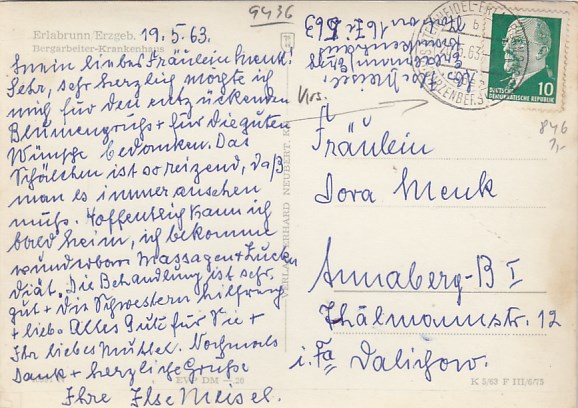 9436
Erlabrunn/Erzgeb.
Bergarbeiter-Krankenhaus
19.5.63.
Mein liebes Fräulein Menk!
Sehr, sehr herzlich möchte ich
mich für den entzückenden
Blumengruß + für die guten
Wünsche bedanken. Das
Schälchen ist so reizend, daß
man es immer ansehen
muß. Hoffentlich kann ich
bald heim, ich bekomme
wunderbare Massagen + Zucker
diät. Die Behandlung ist sehr
gut + die Schwestern hilfreich
+ lieb. Alles Gute für Sie +
Ihr liebes Muttel. Nochmals
Dank + herzliche Grüße
Ihre Ilse Meisel.
EVP DM -.20
VERLAG ERHARD NEUBERT, K
Abs.
I. Meisel
Krankenhaus
Fräulein
Dora Menk
Annaberg-B I
Thälmannstr. 12
i. Fa Dalichow.
DEUTSCHE
DEMOKRATISCHE REPUBLIK
10
846
K 5/63 F III/6/75